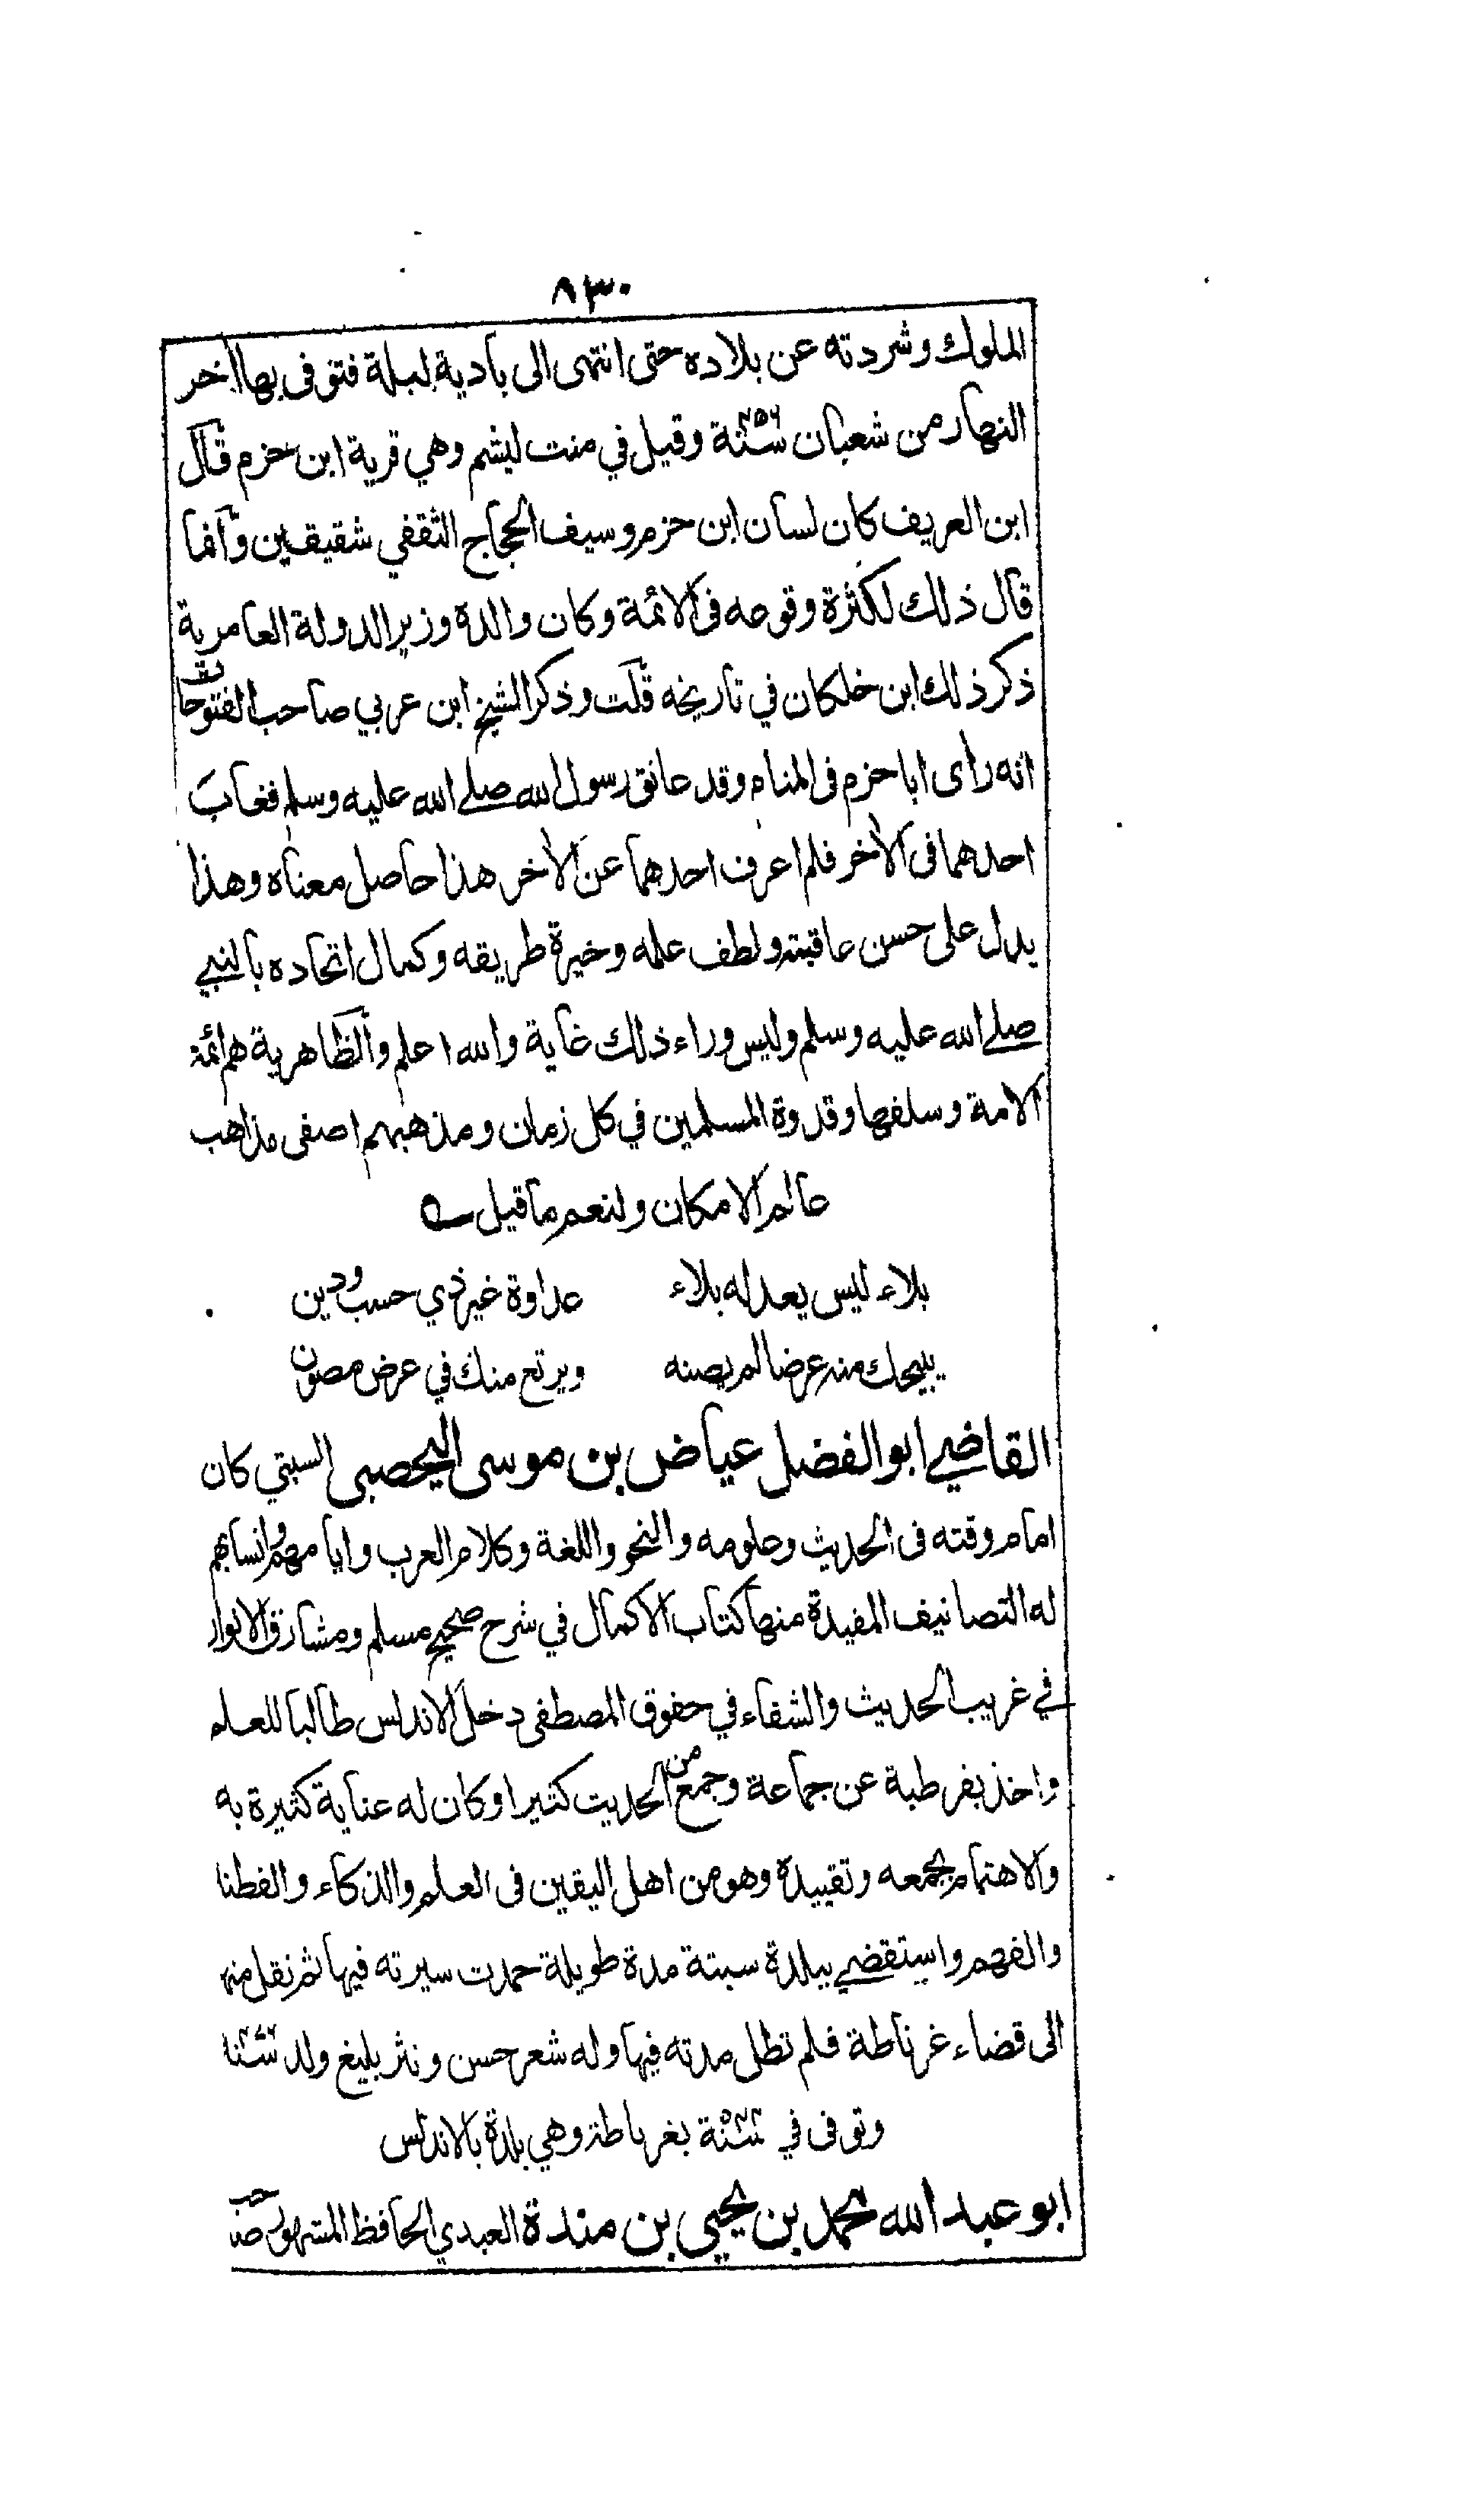 ٨٣٠
الملوك وشردته عن بلاده حتى انتهى الى بادية لبلة فتوفى بها اخر
النهار من شعبان سنة ٤٥٦ وقيل في منت ليشم وهي قرية ابن حزم قال
ابن العريف كان لسان ابن حزم وسيف الحجاج الثقفي شقيقين وانما
قال ذلك لكثرة وقوعه فى الائمة وكان والده وزير الدولة العامرية
ذكر ذلك ابن خلكان في تاريخه قلت وذكر الشيخ ابن عربي صاحب الفتوحات
انه راى ابا حزم فى المنام وقد عانق رسول الله صلى الله عليه وسلم فغاب
احدهما فى الآخر فلم اعرف احدهما عن الآخر هذا حاصل معناه وهذا
يدل على حسن عاقبته ولطف علمه وخيرة طريقه وكمال اتحاده بالنبي
صلى الله عليه وسلم وليس وراء ذلك غاية والله اعلم والظاهرية هم ائمة
الامة وسلفها وقدوة المسلمين في كل زمان ومذهبهم اصفى مذاهب
عالم الامكان ولنعم ما قيل
بلاء ليس يعدله بلاء عداوة غير ذي حسب ودين
يبيحك منه عرضا لم يصنه ويرتع منك في عرض مصون
القاضي ابو الفضل عياض بن موسى اليحصبى السبتي كان
امام وقته فى الحديث وعلومه والنحو واللغة وكلام العرب وايامهم وانسابهم
له التصانيف المفيدة منها كتاب الاكمال في شرح صحيح مسلم ومشارق الانوار
في غريب الحديث والشفاء في حقوق المصطفى دخل الاندلس طالبا للعلم
واخذ بقرطبة عن جماعة وجمع من الحديث كثيرا وكان له عناية كثيرة به
والاهتمام بجمعه وتقييده وهو من اهل اليقين فى العلم والذكاء والفطنا
والفهم واستقضي ببلدة سبتة مدة طويلة حمدت سيرته فيها ثم نقل منها
الى قضاء غرناطة فلم تطل مدته فيها وله شعر حسن ونثر بليغ ولد سنة
وتوفى في سنة بغرناطة وهي بلدة بالاندلس
ابو عبد الله محمد بن يحيى بن مندة العبدي الحافظ المشهور صاحب